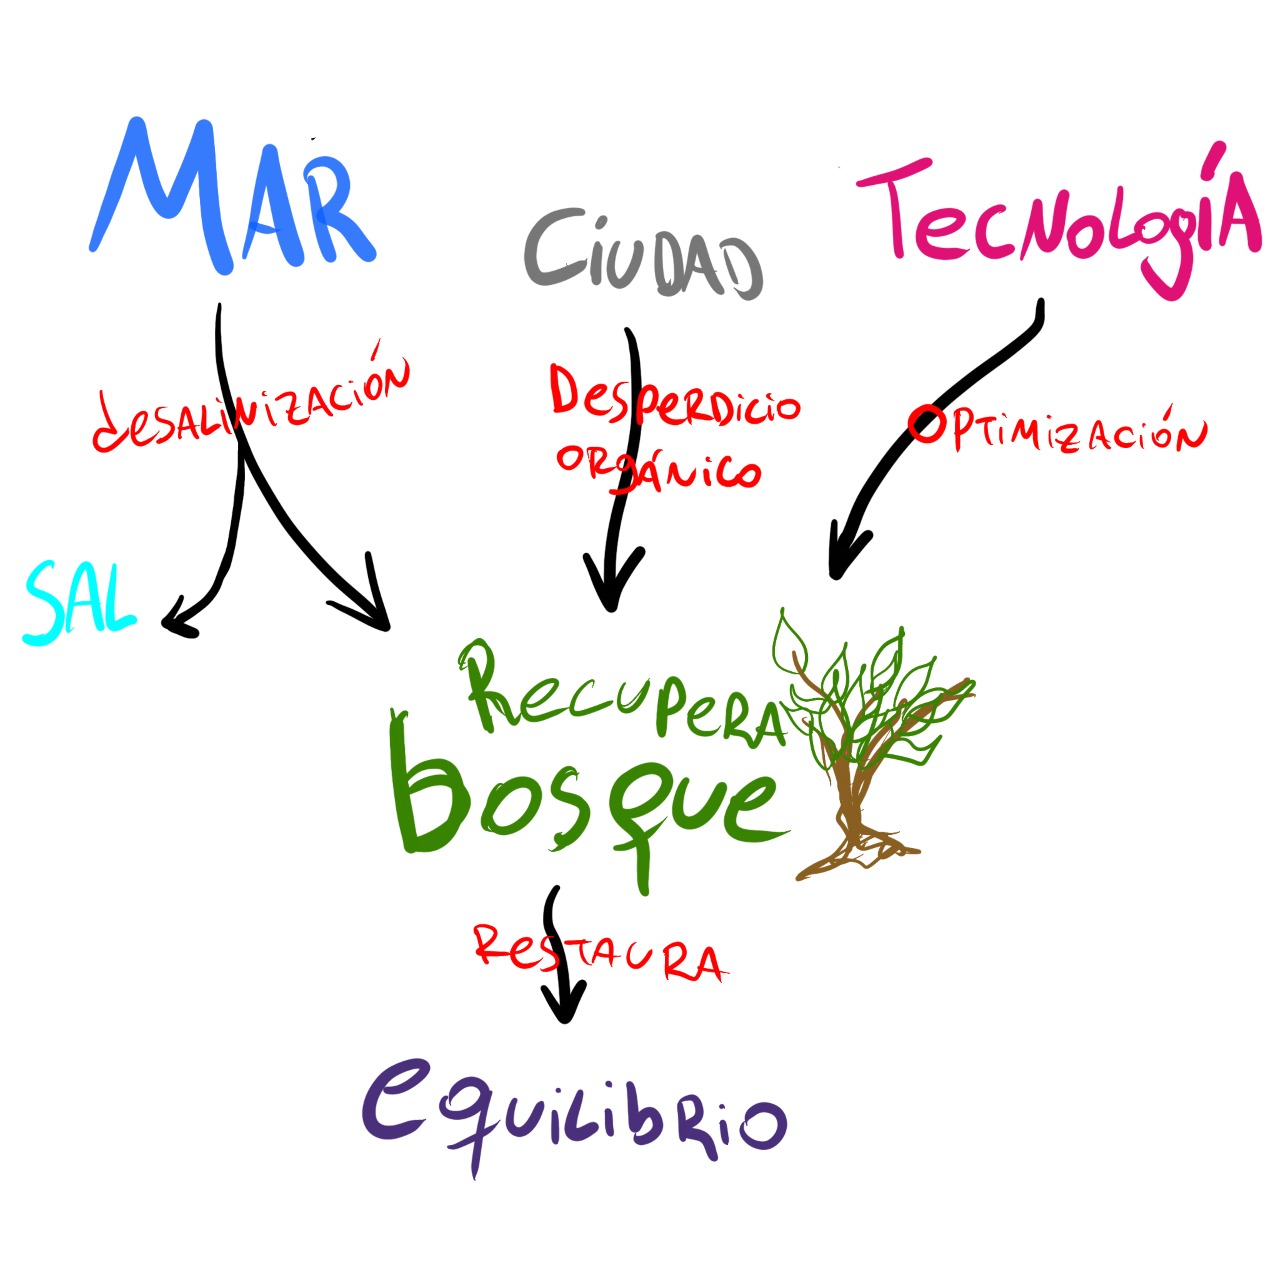 MAR
CIUDAD
TECNOLOGÍA
desalinización
Desperdicio
orgánico
Optimización
SAL
Recupera
bosque
Restaura
equilibrio